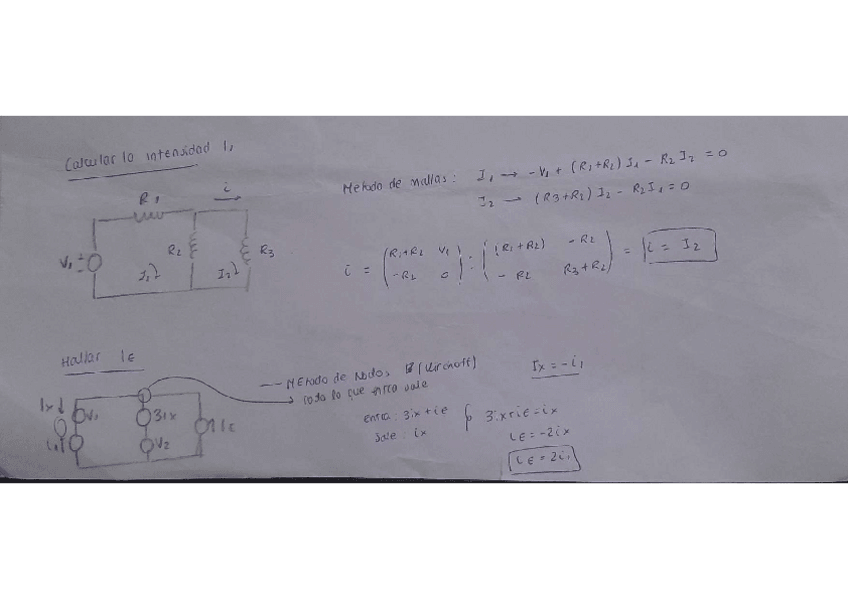 Calcular la intensidad I₁
R1
i
V₁
R2
R3
I₁
I₂
Método de mallas: I₁ → -V₁ + (R₁+R₂) I₁ - R₂ I₂ = 0
I₂ → (R3+R₂) I₂ - R₂ I₁ = 0
i = (R₁+R₂ V₁ -R₂ 0) : ((R₁+R₂) -R₂ -R₂ R₃+R₂) = i = I₂
Hallar IE
Ix
V₁
i₁
3ix
V2
IE
Método de Nodos, (Kirchoff)
todo lo que entra sale
entra: 3ix + iE
sale: ix
3ix+iE=ix
iE = -2ix
iE = 2i₁
Ix = -i₁